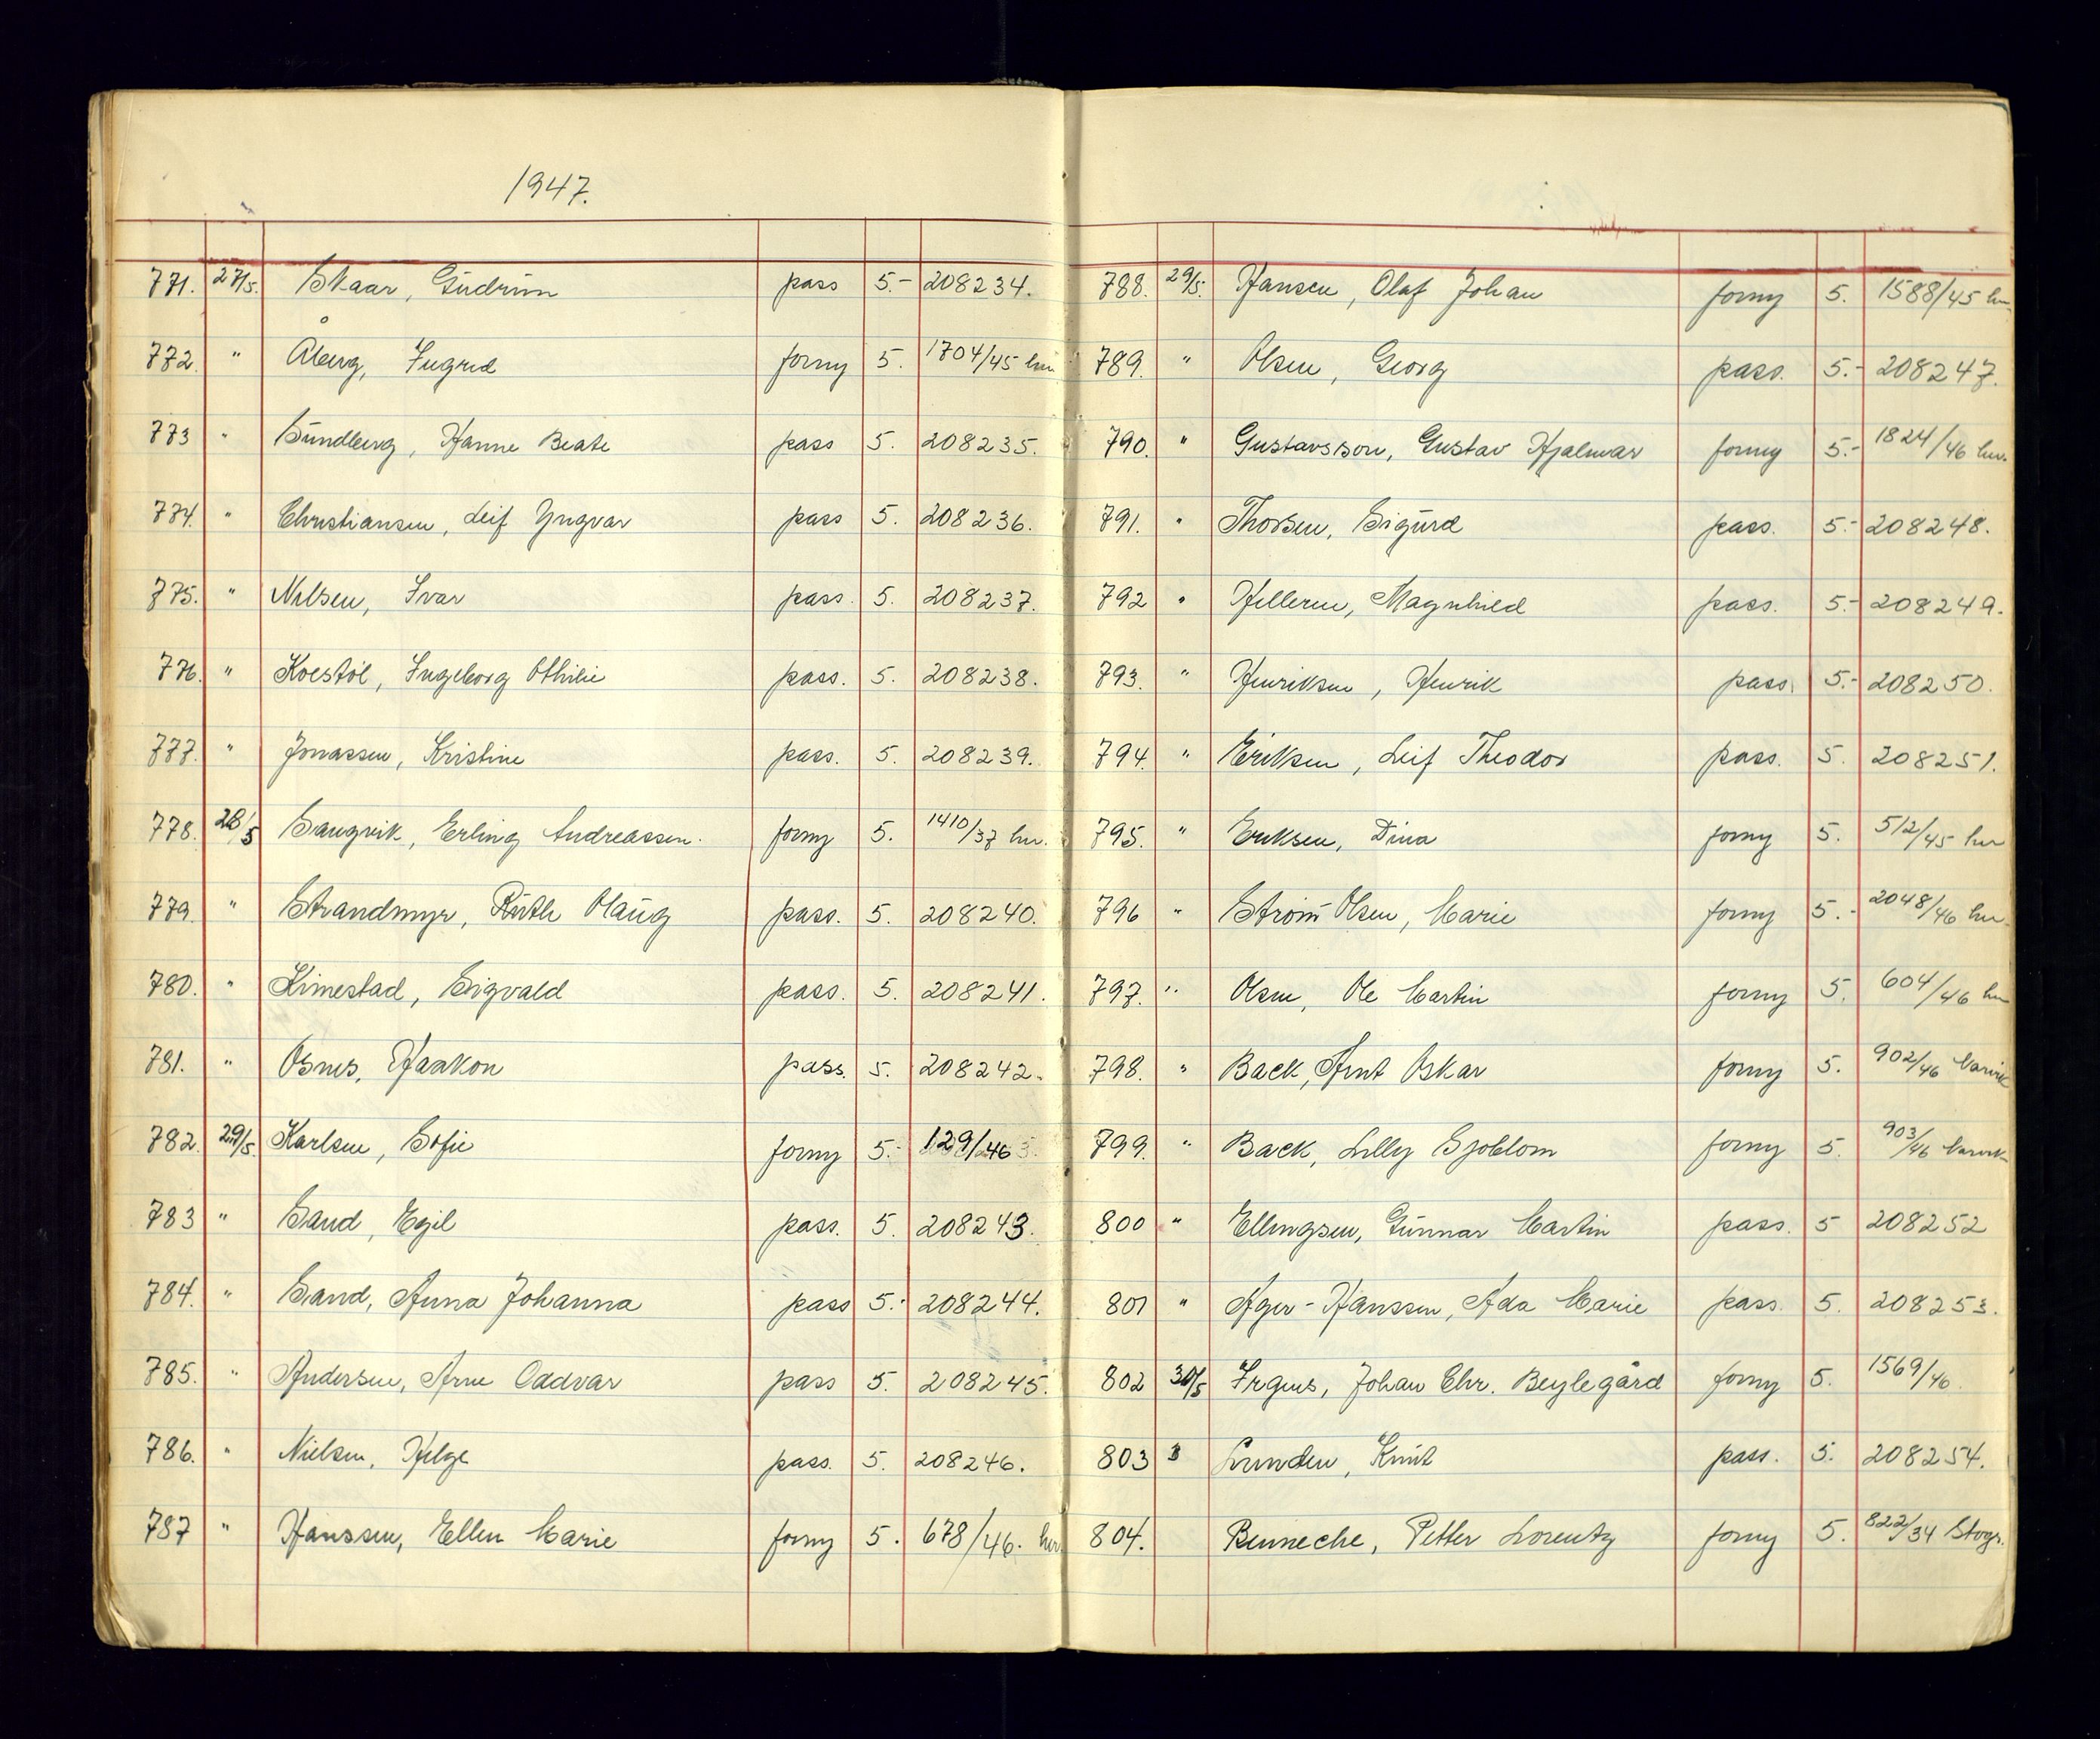 1947.
771. 27/5. Skaar, Gudrun pass 5.- 208234.
772. " Åberg, Ingrid forny 5. 1704/45 hv.
773 " Sundberg, Hanne Beate pass 5. 208235.
774. " Christiansen, Leif Yngvar pass 5. 208236.
775. " Nilsen, Ivar pass. 5. 208237.
776. " Koestøl, Ingeborg Othilie pass. 5. 208238.
777. " Jonassen, Kristine pass. 5. 208239.
778. 28/5 Saugvik, Erling Andreassen. forny 5. 1410/37 hv.
779. " Strandmyr, Ruth Olaug pass. 5. 208240.
780. " Kimestad, Sigvald pass. 5. 208241.
781. " Osnes, Haakon pass. 5. 208242.
782. 29/5. Karlsen, Sofie forny 5.- 129/46
783 " Sand, Egil pass. 5. 208243.
784. " Sand, Anna Johanna pass 5.- 208244.
785. " Andersen, Arne Oddvar pass 5. 208245.
786. " Nielsen, Helge pass. 5. 208246.
787 " Hanssen, Ellen Marie forny 5. 678/46. hv.
788. 29/5. Hansen, Olaf Johan forny 5. 1588/45 hv.
789. " Olsen, Georg pass. 5.- 208247.
790. " Gustavsson, Gustav Hjalmar forny 5.- 1824/46 hv.
791. " Thorsen, Sigurd pass. 5.- 208248.
792 " Helleren, Magnhild pass. 5.- 208249.
793. " Henriksen, Henrik pass. 5.- 208250.
794. " Eriksen, Leif Theodor pass. 5. 208251.
795. " Eriksen, Dina forny 5. 512/45 hv
796 " Strøm Olsen, Marie forny 5.- 2048/46 hv.
797. " Olsen, Ole Martin forny 5. 604/46 hv
798. " Back, Arnt Oskar forny 5. 902/46 Narvik
799. " Back, Lilly Sjøblom forny 5. 903/46 Narvik
800 " Ellingsen, Gunnar Martin pass. 5 208252
801 " Ager-Hanssen, Ada Marie pass. 5. 208253.
802 30/5 Irgens, Johan Chr. Beylegård forny 5. 1569/46
803 " Lunden, Knut pass. 5. 208254.
804. Benneche, Petter Lorentz forny 5. 822/34